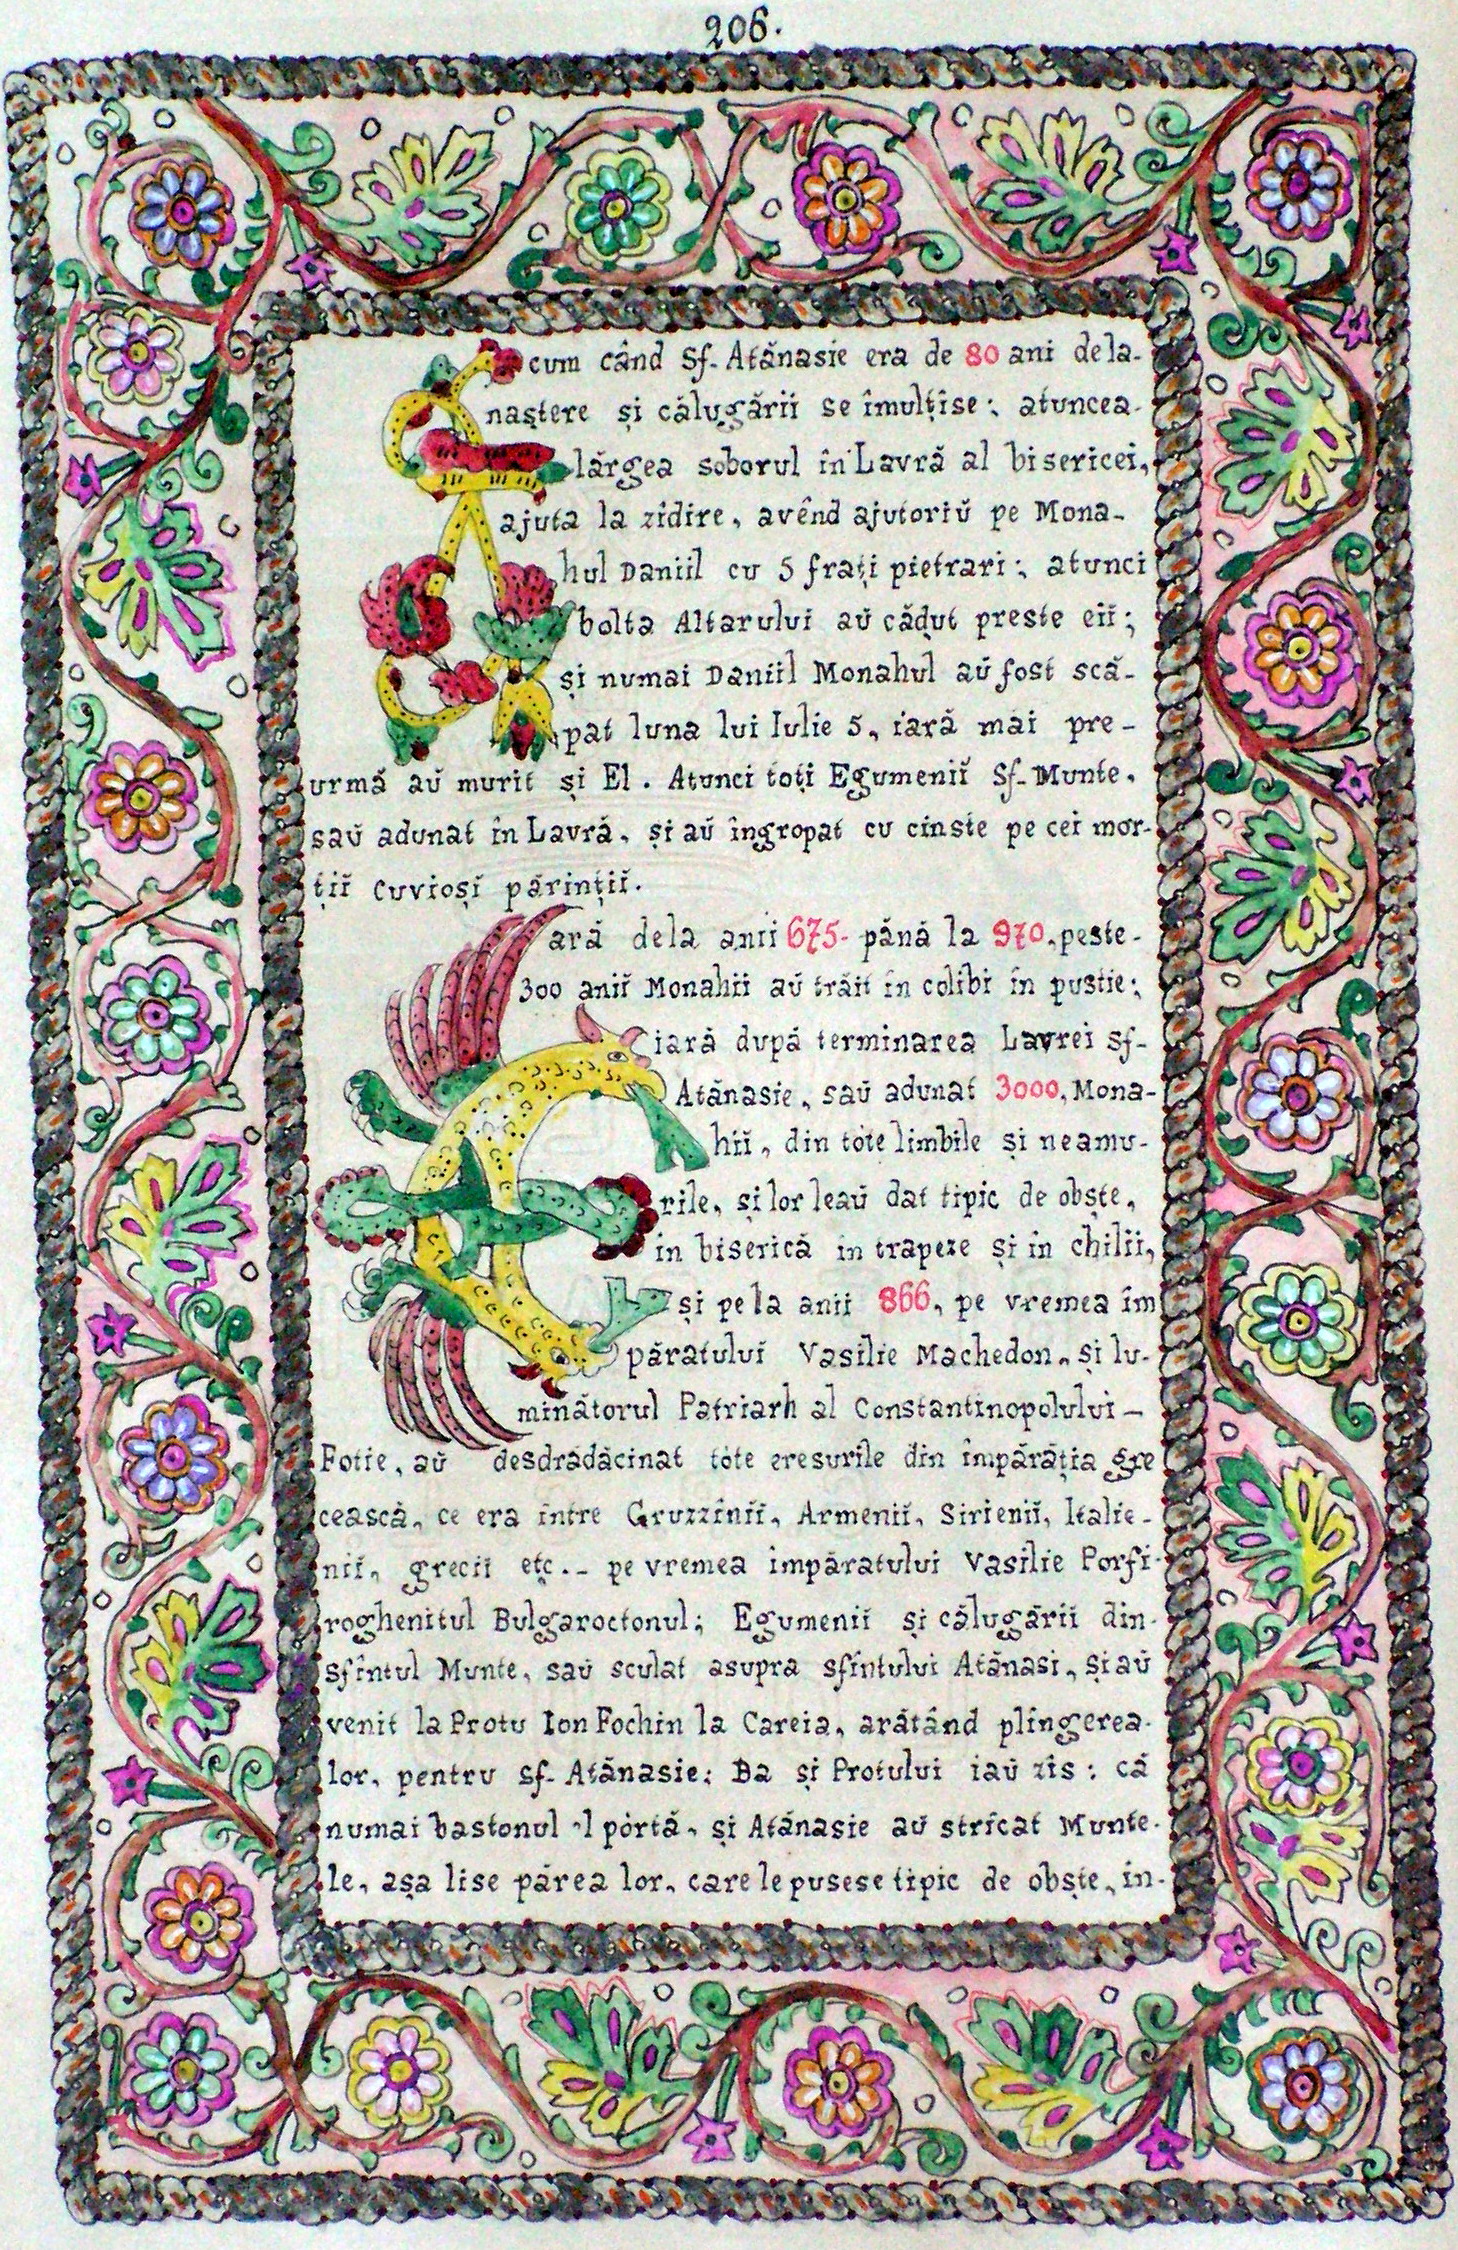 206.
Acum când Sf. Atănasie era de 80 ani dela-
naștere și călugării se îmulțise; atuncea-
lărgea soborul în Lavră al bisericei,
ajuta la zidire, avênd ajutoriŭ pe Mona-
hul Daniil cu 5 frați pietrari; atunci
bolta Altarului aŭ cădut preste eiĭ;
și numai Daniil Monahul aŭ fost scă-
pat luna lui Iulie 5, iară mai pre-
urmă aŭ murit și El. Atunci toți Egumeniĭ Sf. Munte,
saŭ adunat în Lavră, și aŭ îngropat cu cinste pe cei mor-
țiĭ Cuvioși părințiĭ.
Iară dela anii 675- până la 970, peste-
300 aniĭ Monahii aŭ trăit în colibi în pustie;
iară după terminarea Lavrei Sf-
Atănasie, saŭ adunat 3000, Mona-
hiĭ, din tóte limbile și neamu-
rile, și lor leaŭ dat tipic de obște,
în biserică în trapeze și în chilii,
și pe la anii 866, pe vremea îm
păratului Vasilie Machedon, și lu-
minătorul Patriarh al Constantinopolului-
Fotie, aŭ desdrădăcinat tóte eresurile din împărăția gre
cească, ce era între Gruzziniĭ, Armeniĭ, Sirieniĭ, Italie-
niĭ, greciĭ etc.- pe vremea împăratului Vasilie Porfi-
roghenitul Bulgaroctonul; Egumeniĭ și călugăriĭ din-
Sfîntul Munte, saŭ sculat asupra sfîntului Atănasi, și aŭ
venit la Protu Ion Fochin la Careia, arătând plîngerea-
lor, pentru Sf. Atănasie; Ba și Protului iaŭ zis: că
numai bastonul 'l pórtă, și Atănasie aŭ stricat Munte-
le, așa lise părea lor, care le pusese tipic de obște, în-